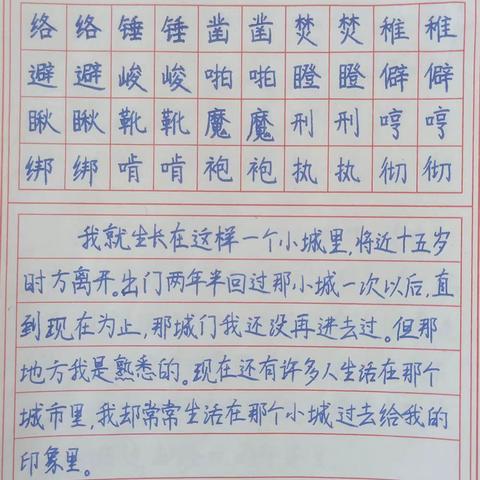 络络锤锤凿凿焚焚稚稚
避避峻峻啪啪瞪瞪僻僻
瞅瞅靴靴魔魔刑刑哼哼
绑绑啃啃袍袍执执彻彻
我就生长在这样一个小城里,将近十五岁
时方离开。出门两年半回过那小城一次以后,直
到现在为止,那城们我还没再进去过。但那
地方我是熟悉的。现在还有许多人生活在那个
城市里,我却常常生活在那个小城过去给我的
印象里。